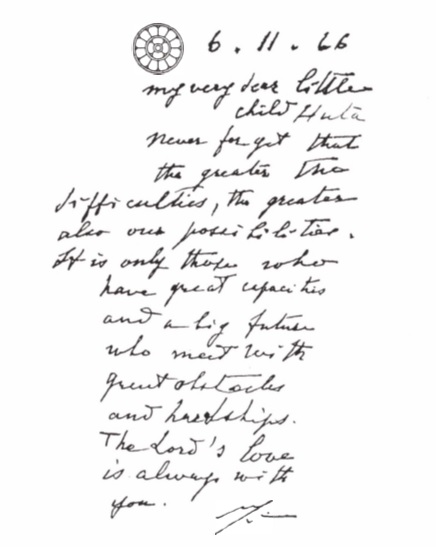 6.11.66
my very dear little
child Huta
Never forget that
the greater the
difficulties, the greater
also our possibilities.
It is only those who
have great capacities
and a big future
who meet with
great obstacles
and hardships.
The Lord's love
is always with
you.